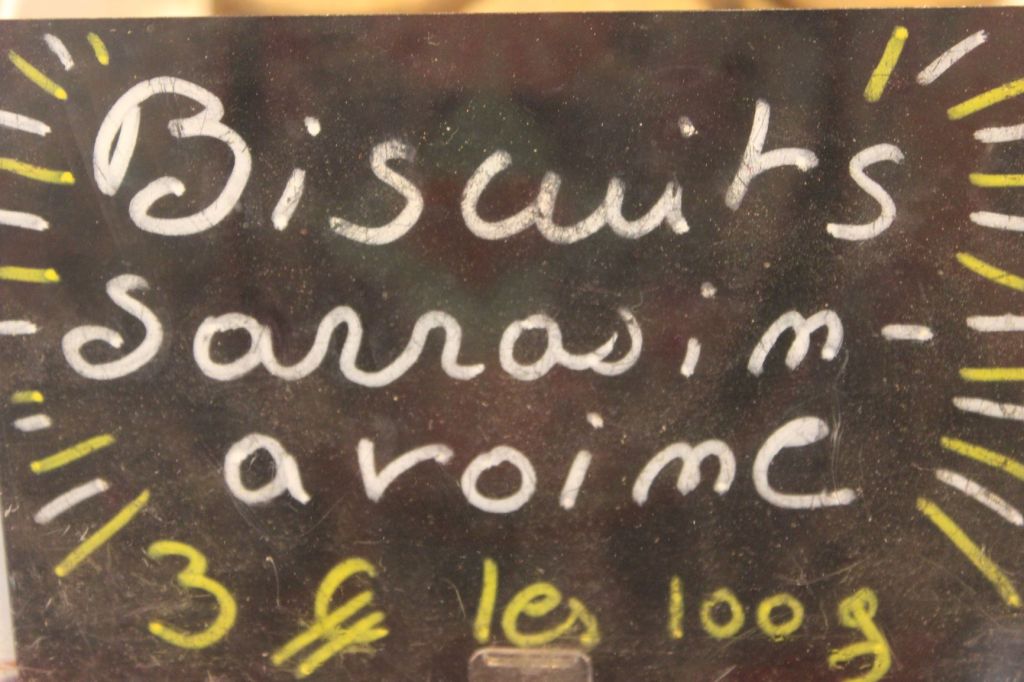 Biscuits
sarrasin-
avoine
3 € les 100 g